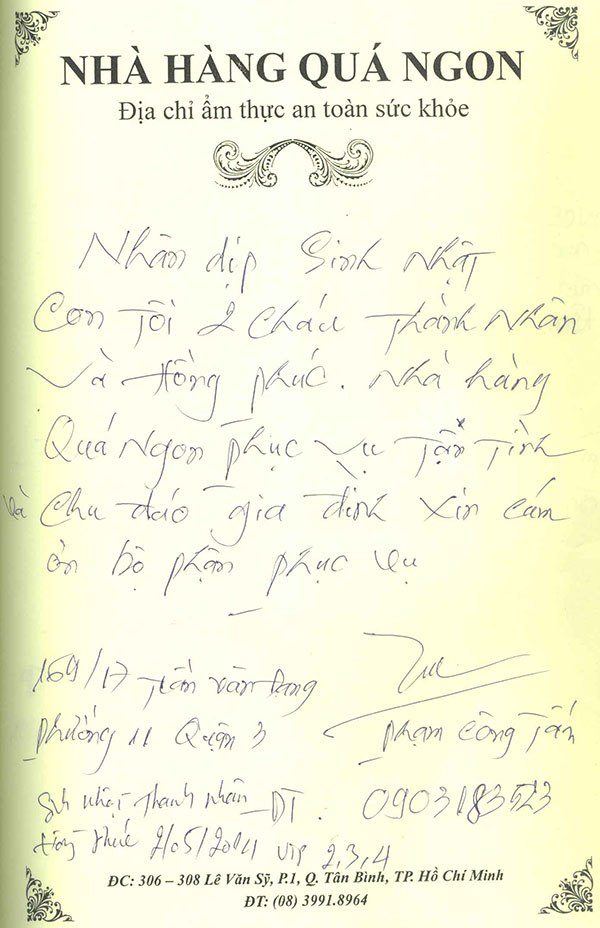 NHÀ HÀNG QUÁ NGON
Địa chỉ ẩm thực an toàn sức khỏe
Nhân dịp Sinh Nhật
Con Tôi 2 Cháu Thành Nhân
Và Hồng Phúc. Nhà hàng
Quá Ngon phục vụ Tận Tình
và Chu đáo gia đình Xin cám
ơn bộ phận phục vụ
169/17 Trần Văn Đang
Phường 11 Quận 3
Phạm Công Tấn
Sinh nhật Thanh Nhân ĐT. 0903183523
2/05/2014 vip 2,3,4
ĐC: 306 – 308 Lê Văn Sỹ, P.1, Q. Tân Bình, TP. Hồ Chí Minh
ĐT: (08) 3991.8964